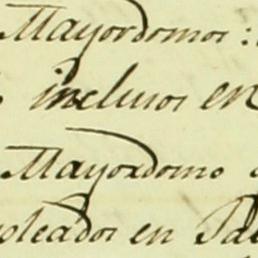 Mayordomos:
inclusos en
Mayordomo
pleados en